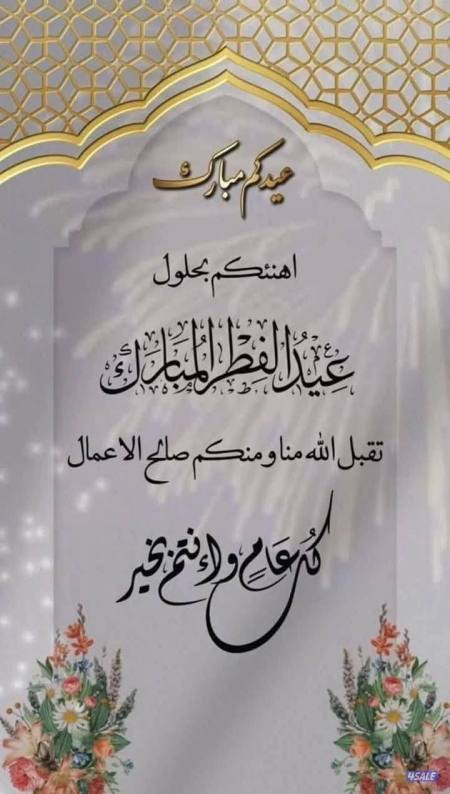 عيدكم مبارك
اهنئكم بحلول
عِيدُ الفِطْرِ المُبَارَك
تقبل الله منا ومنكم صالح الاعمال
كل عَامٍ وإنتم بخير
4SALE